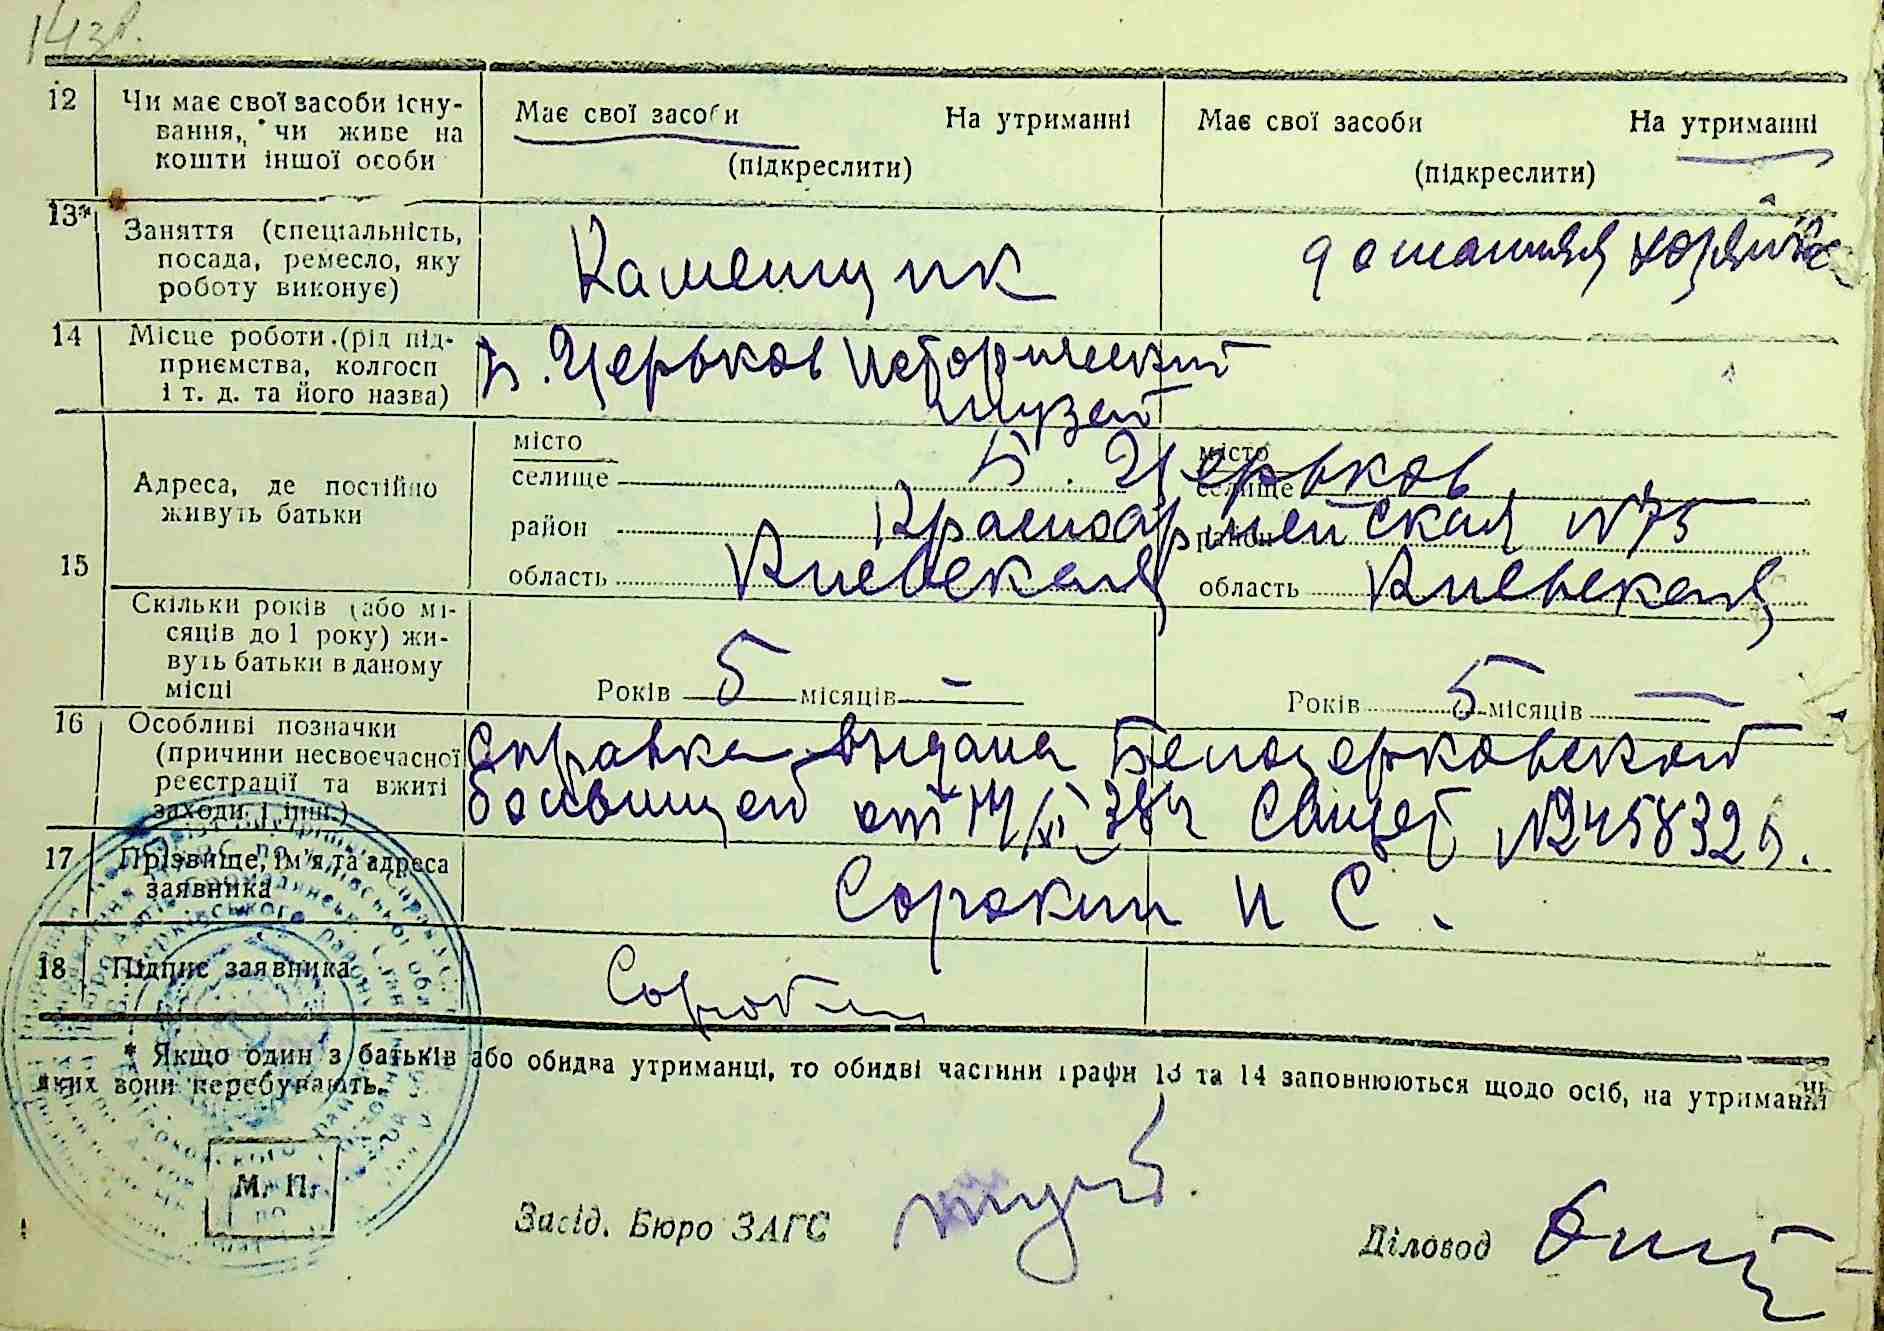 143в.
12 Чи має свої засоби існу-
вання, чи живе на
кошти іншої особи
Має свої засоби На утриманні
(підкреслити)
Має свої засоби На утриманні
(підкреслити)
13* Заняття (спеціальність,
посада, ремесло, яку
роботу виконує)
Каменщик
домашняя хозяйка
14 Місце роботи (рід під-
приємства, колгосп
і т. д. та його назва)
Б. Церьков Исторический
музей
15 Адреса, де постійно
живуть батьки
місто
селище
район
область
Б. Церьков
Красноармейская №75
Киевская
місто
селище
район
область Киевская
Скільки років (або мі-
сяців до 1 року) жи-
вуть батьки в даному
місці
Років 5 місяців –
Років 5 місяців —
16 Особливі позначки
(причини несвоєчасної
реєстрації та вжиті
заходи і інш.)
Справка выдана Белоцерковской
больницей от 14/XI 38 г
17 Прізвище, ім'я та адреса
заявника
Сорокин И С.
18 Підпис заявника
Сорокин
* Якщо один з батьків або обидва утриманці, то обидві частини графи 13 та 14 заповнюються щодо осіб, на утриманні
яких вони перебувають.
М. П.
Засід. Бюро ЗАГС
Діловод